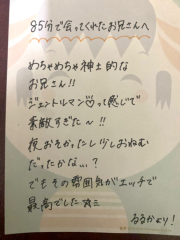 85分で会ってくれたお兄さんへ
めちゃめちゃ紳士的な
お兄さん!!
ジェントルマン♡って感じで
素敵すぎた〜!!
夜おそかったし少しおねむ
だったかな...?
でもその雰囲気がエッチで
最高でした
るるかより!